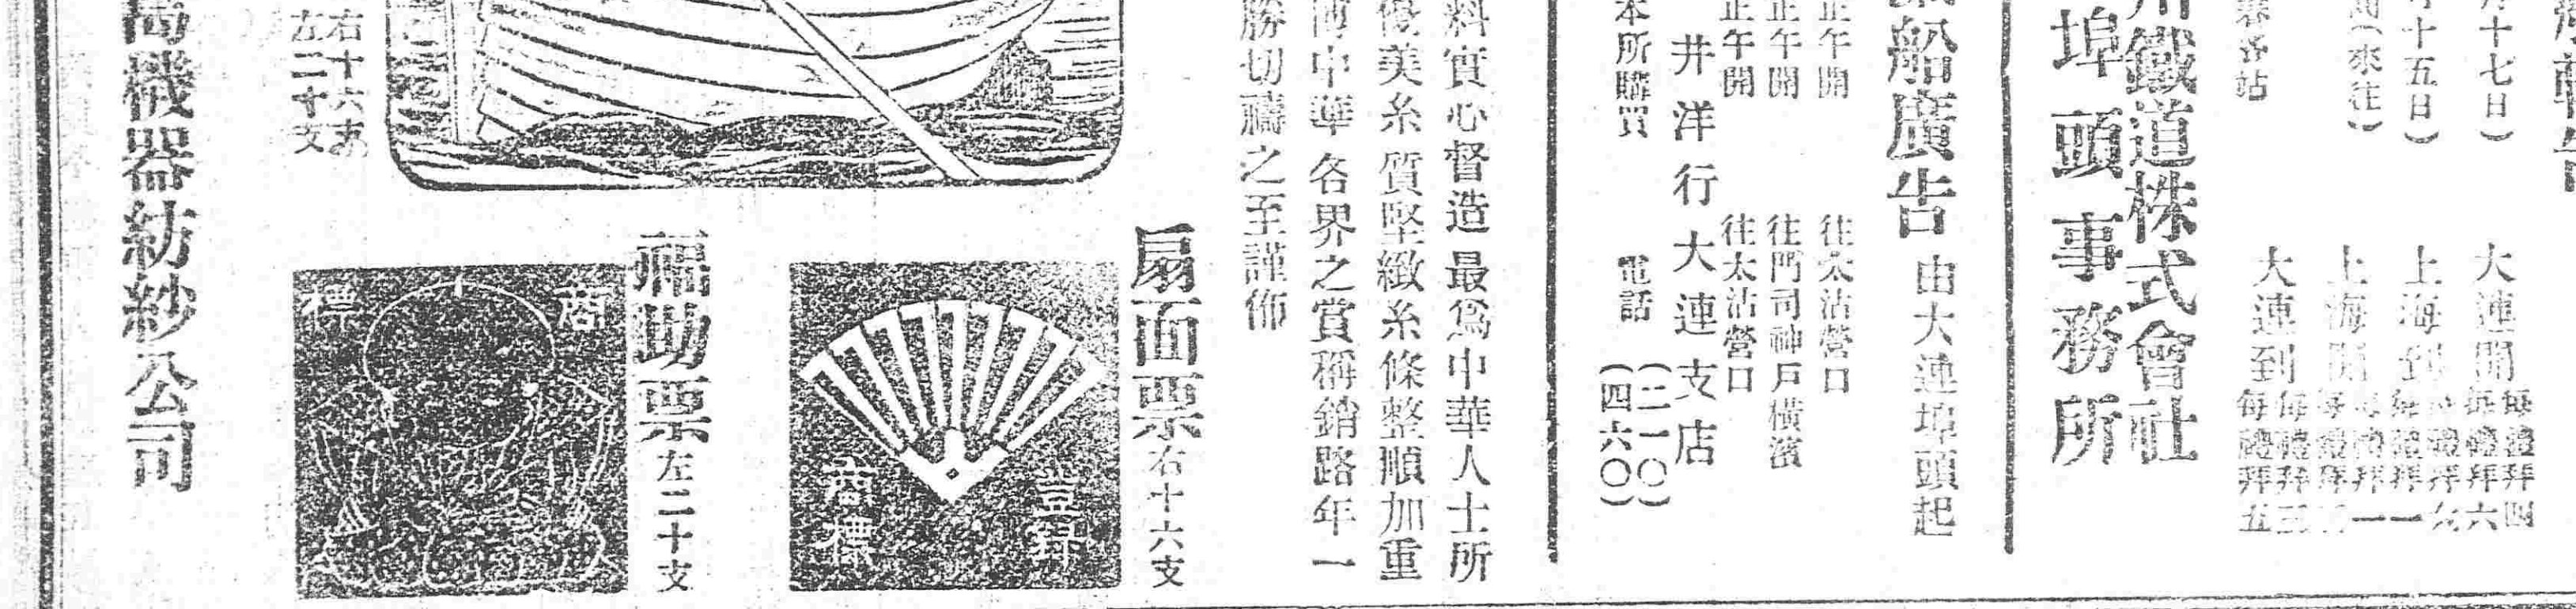 十七日)
大連開
每禮拜四
每禮拜六
十五日)
上海到
(來往)
上海開
大連到
每禮拜三
每禮拜五
鐵道株式會社
埠頭事務所
船廣告
由大連埠頭起
正午開 往太沽營口
正午開 往門司神戶橫濱
正午開 往太沽營口
井洋行大連支店
本所購買 電話
(二一〇)
(四六〇)
料實心督造最爲中華人士所
優美糸質堅緻糸條整順加重
中華各界之賞稱銷路年一
勝切禱之至謹佈
扇面票 右十六支
登錄
商標
福助票 左二十支
商標
右十六支
左二十支
機器紡紗公司